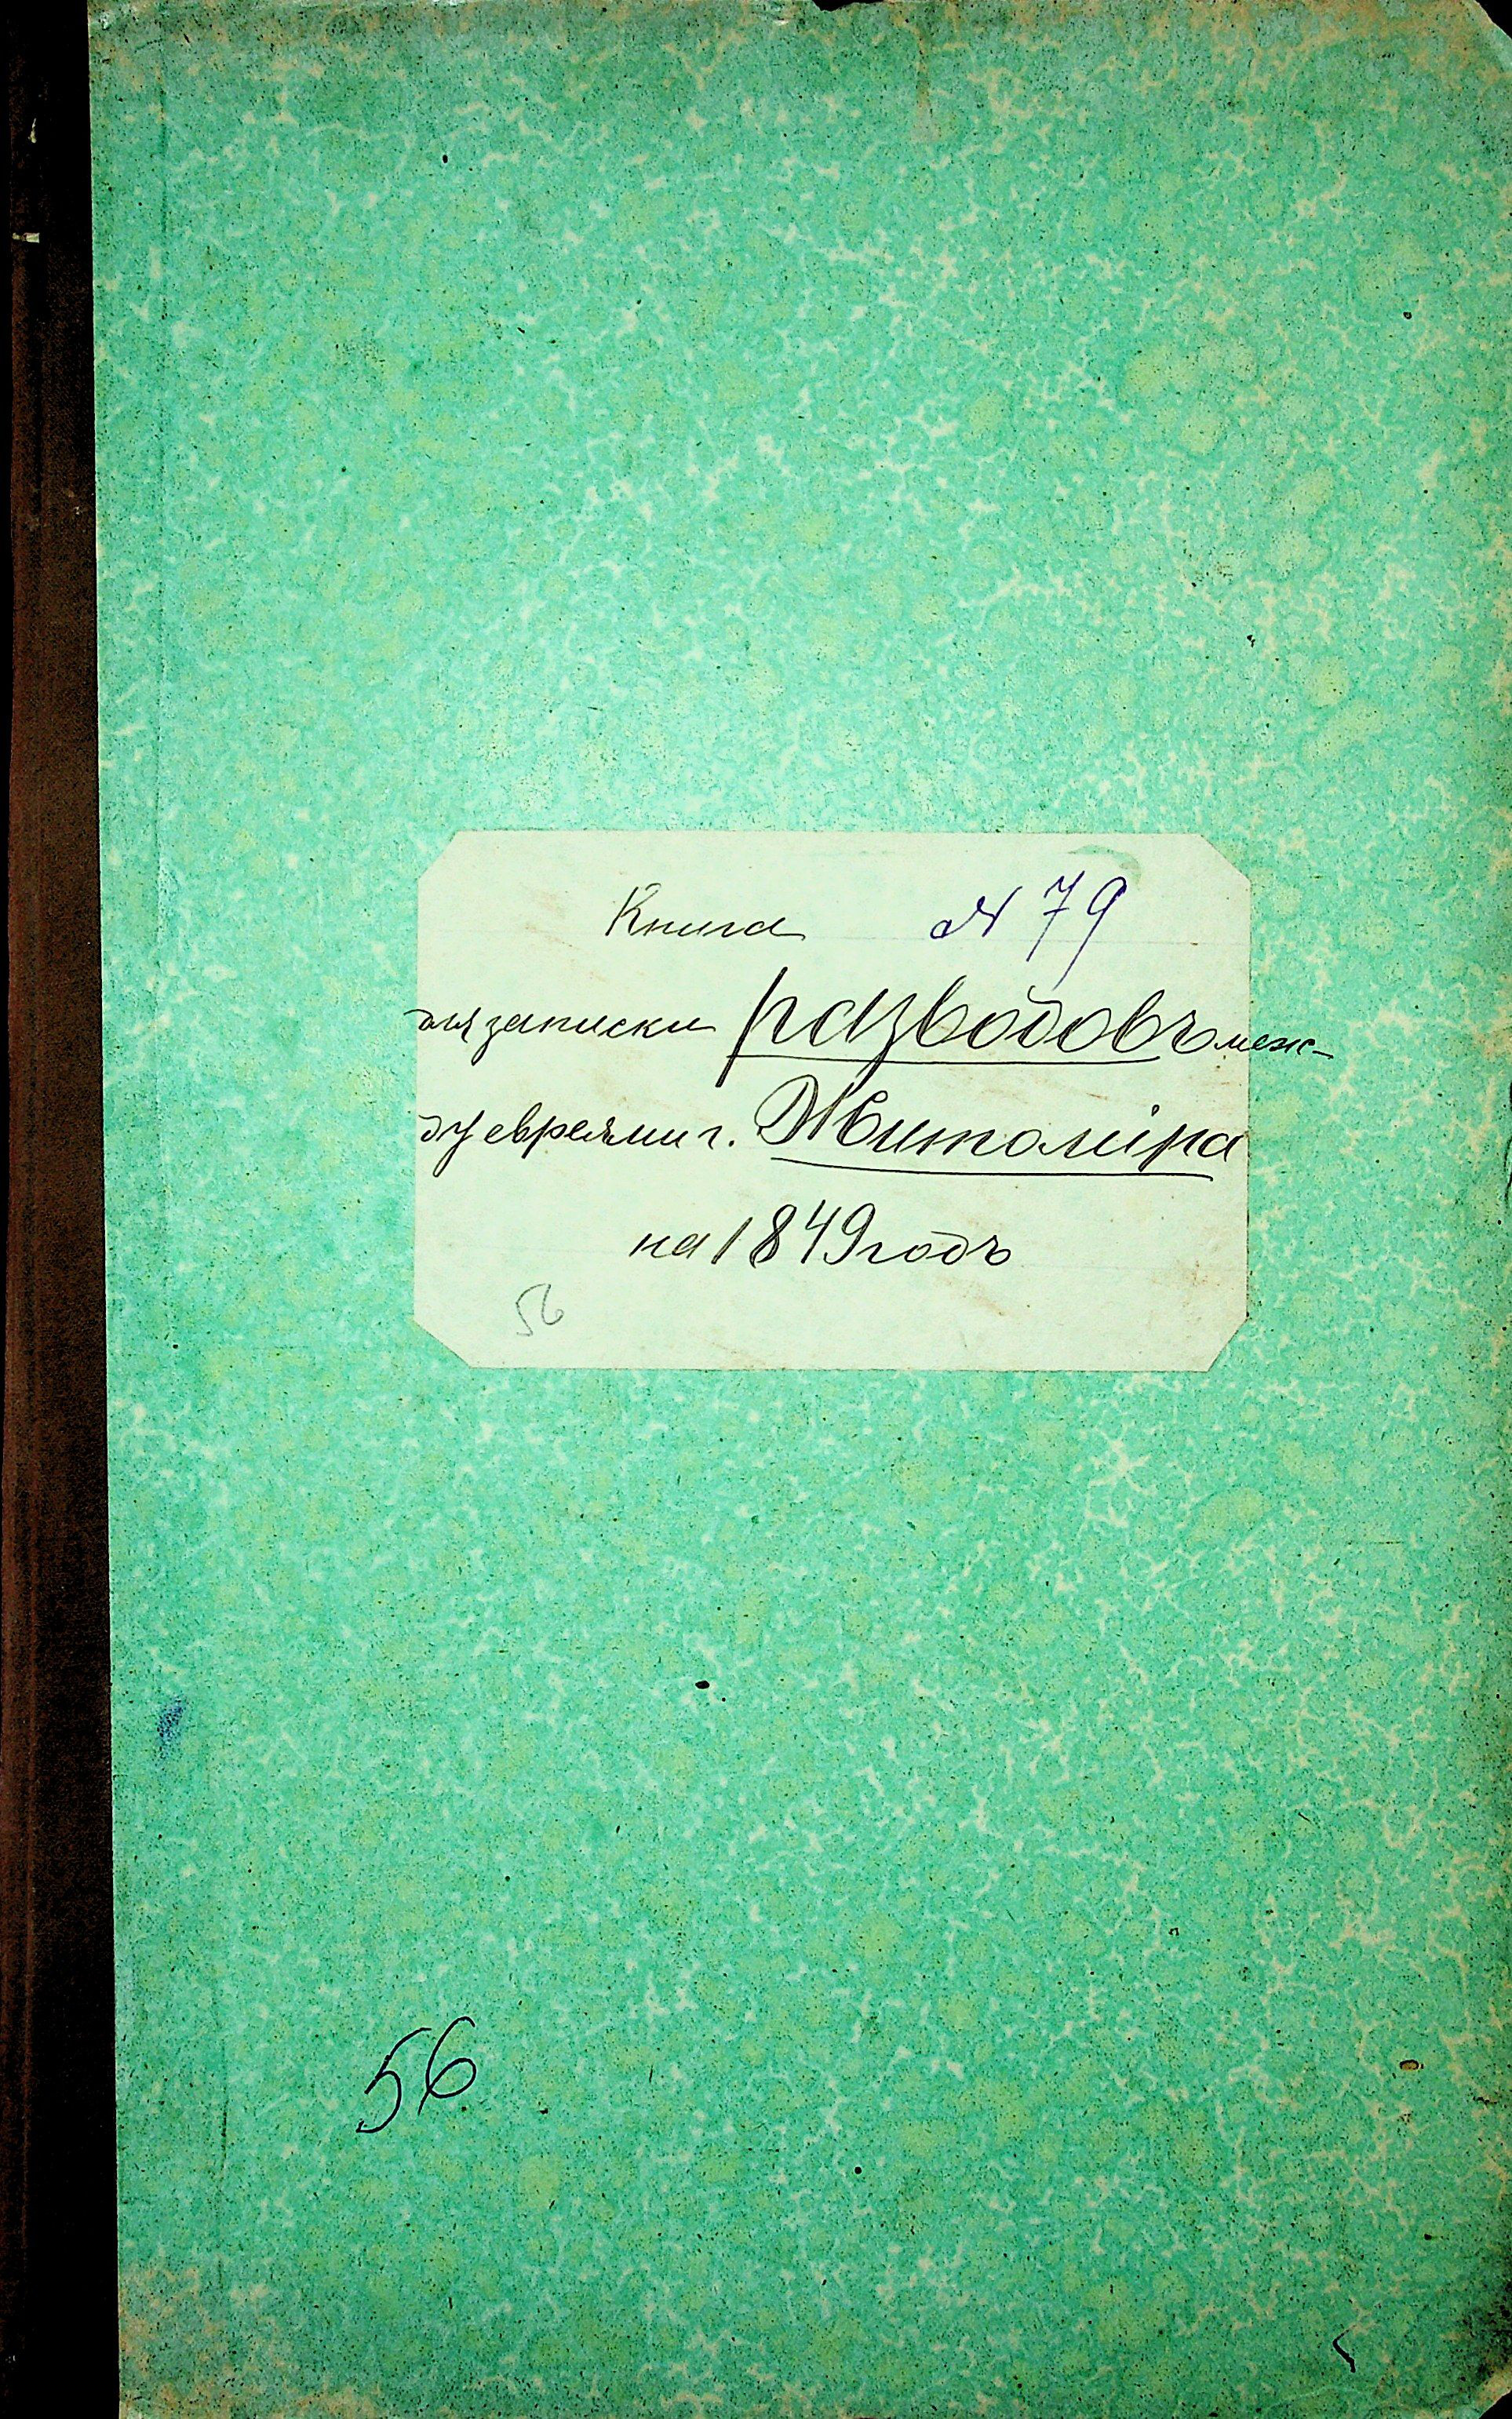 Книга № 79
для записки разводовъ меж-
ду евреями г. Житомiра
на 1849 годъ
56
56